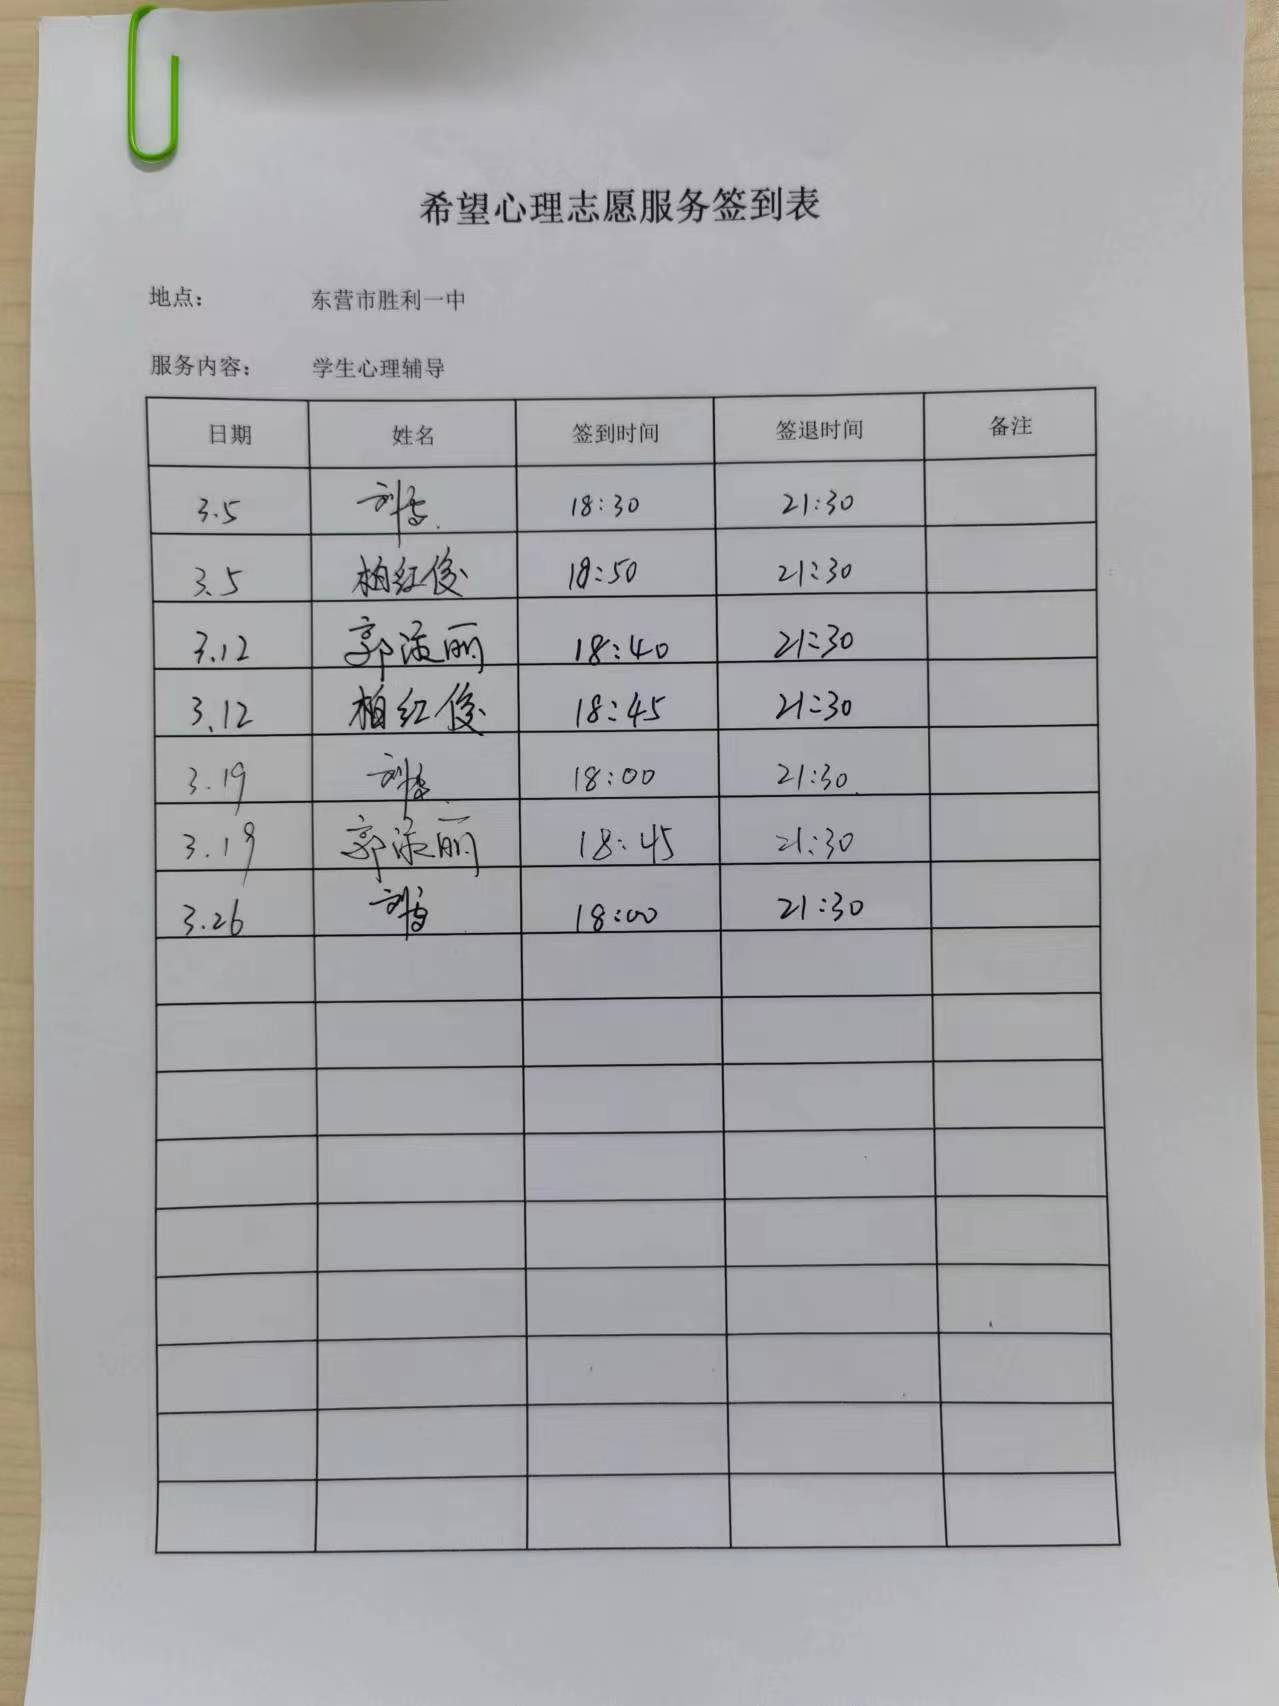 希望心理志愿服务签到表
地点： 东营市胜利一中
服务内容： 学生心理辅导
日期 姓名 签到时间 签退时间 备注
3.5 刘 18:30 21:30
3.5 柏红俊 18:50 21:30
3.12 郭淑丽 18:40 21:30
3.12 柏红俊 18:45 21:30
3.19 刘 18:00 21:30
3.19 郭淑丽 18:45 21:30
3.26 刘 18:00 21:30